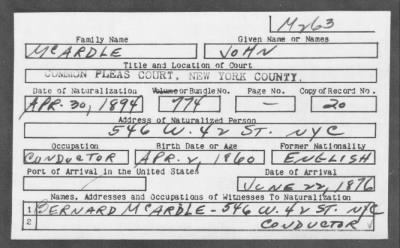 M263
Family Name Given Name or Names
McARDLE JOHN
Title and Location of Court
COMMON PLEAS COURT, NEW YORK COUNTY.
Date of Naturalization Volume or Bundle No. Page No. Copy of Record No.
APR. 30, 1894 774 — 20
Address of Naturalized Person
546 W. 42 ST. NYC
Occupation Birth Date or Age Former Nationality
CONDUCTOR APR. 2, 1860 ENGLISH
Port of Arrival in the United States Date of Arrival
JUNE 22, 1876
Names, Addresses and Occupations of Witnesses To Naturalization
1 BERNARD McARDLE - 546 W. 42 ST. NYC
2 CONDUCTOR